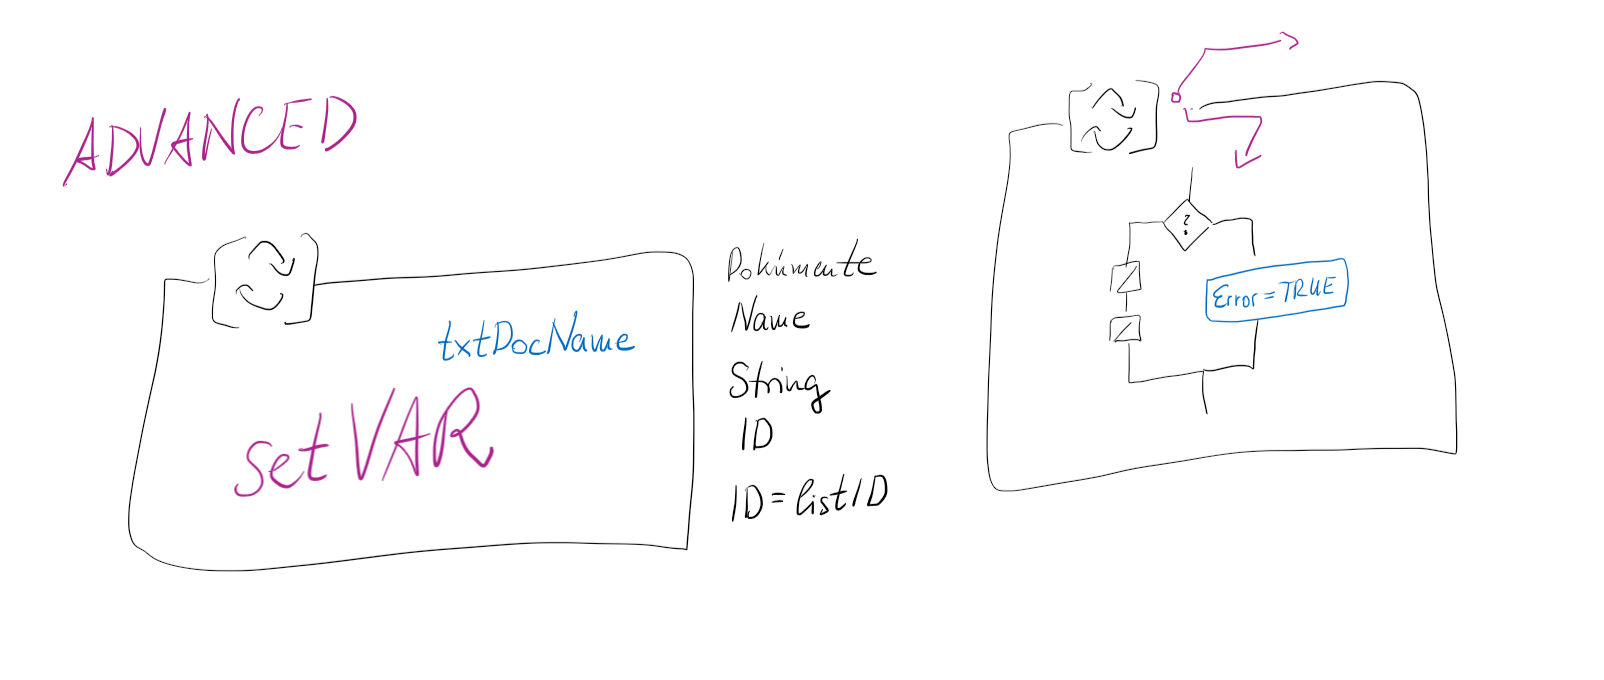 ADVANCED
txtDocName
setVAR
Dokumente
Name
String
ID
ID=listID
?
Error=TRUE